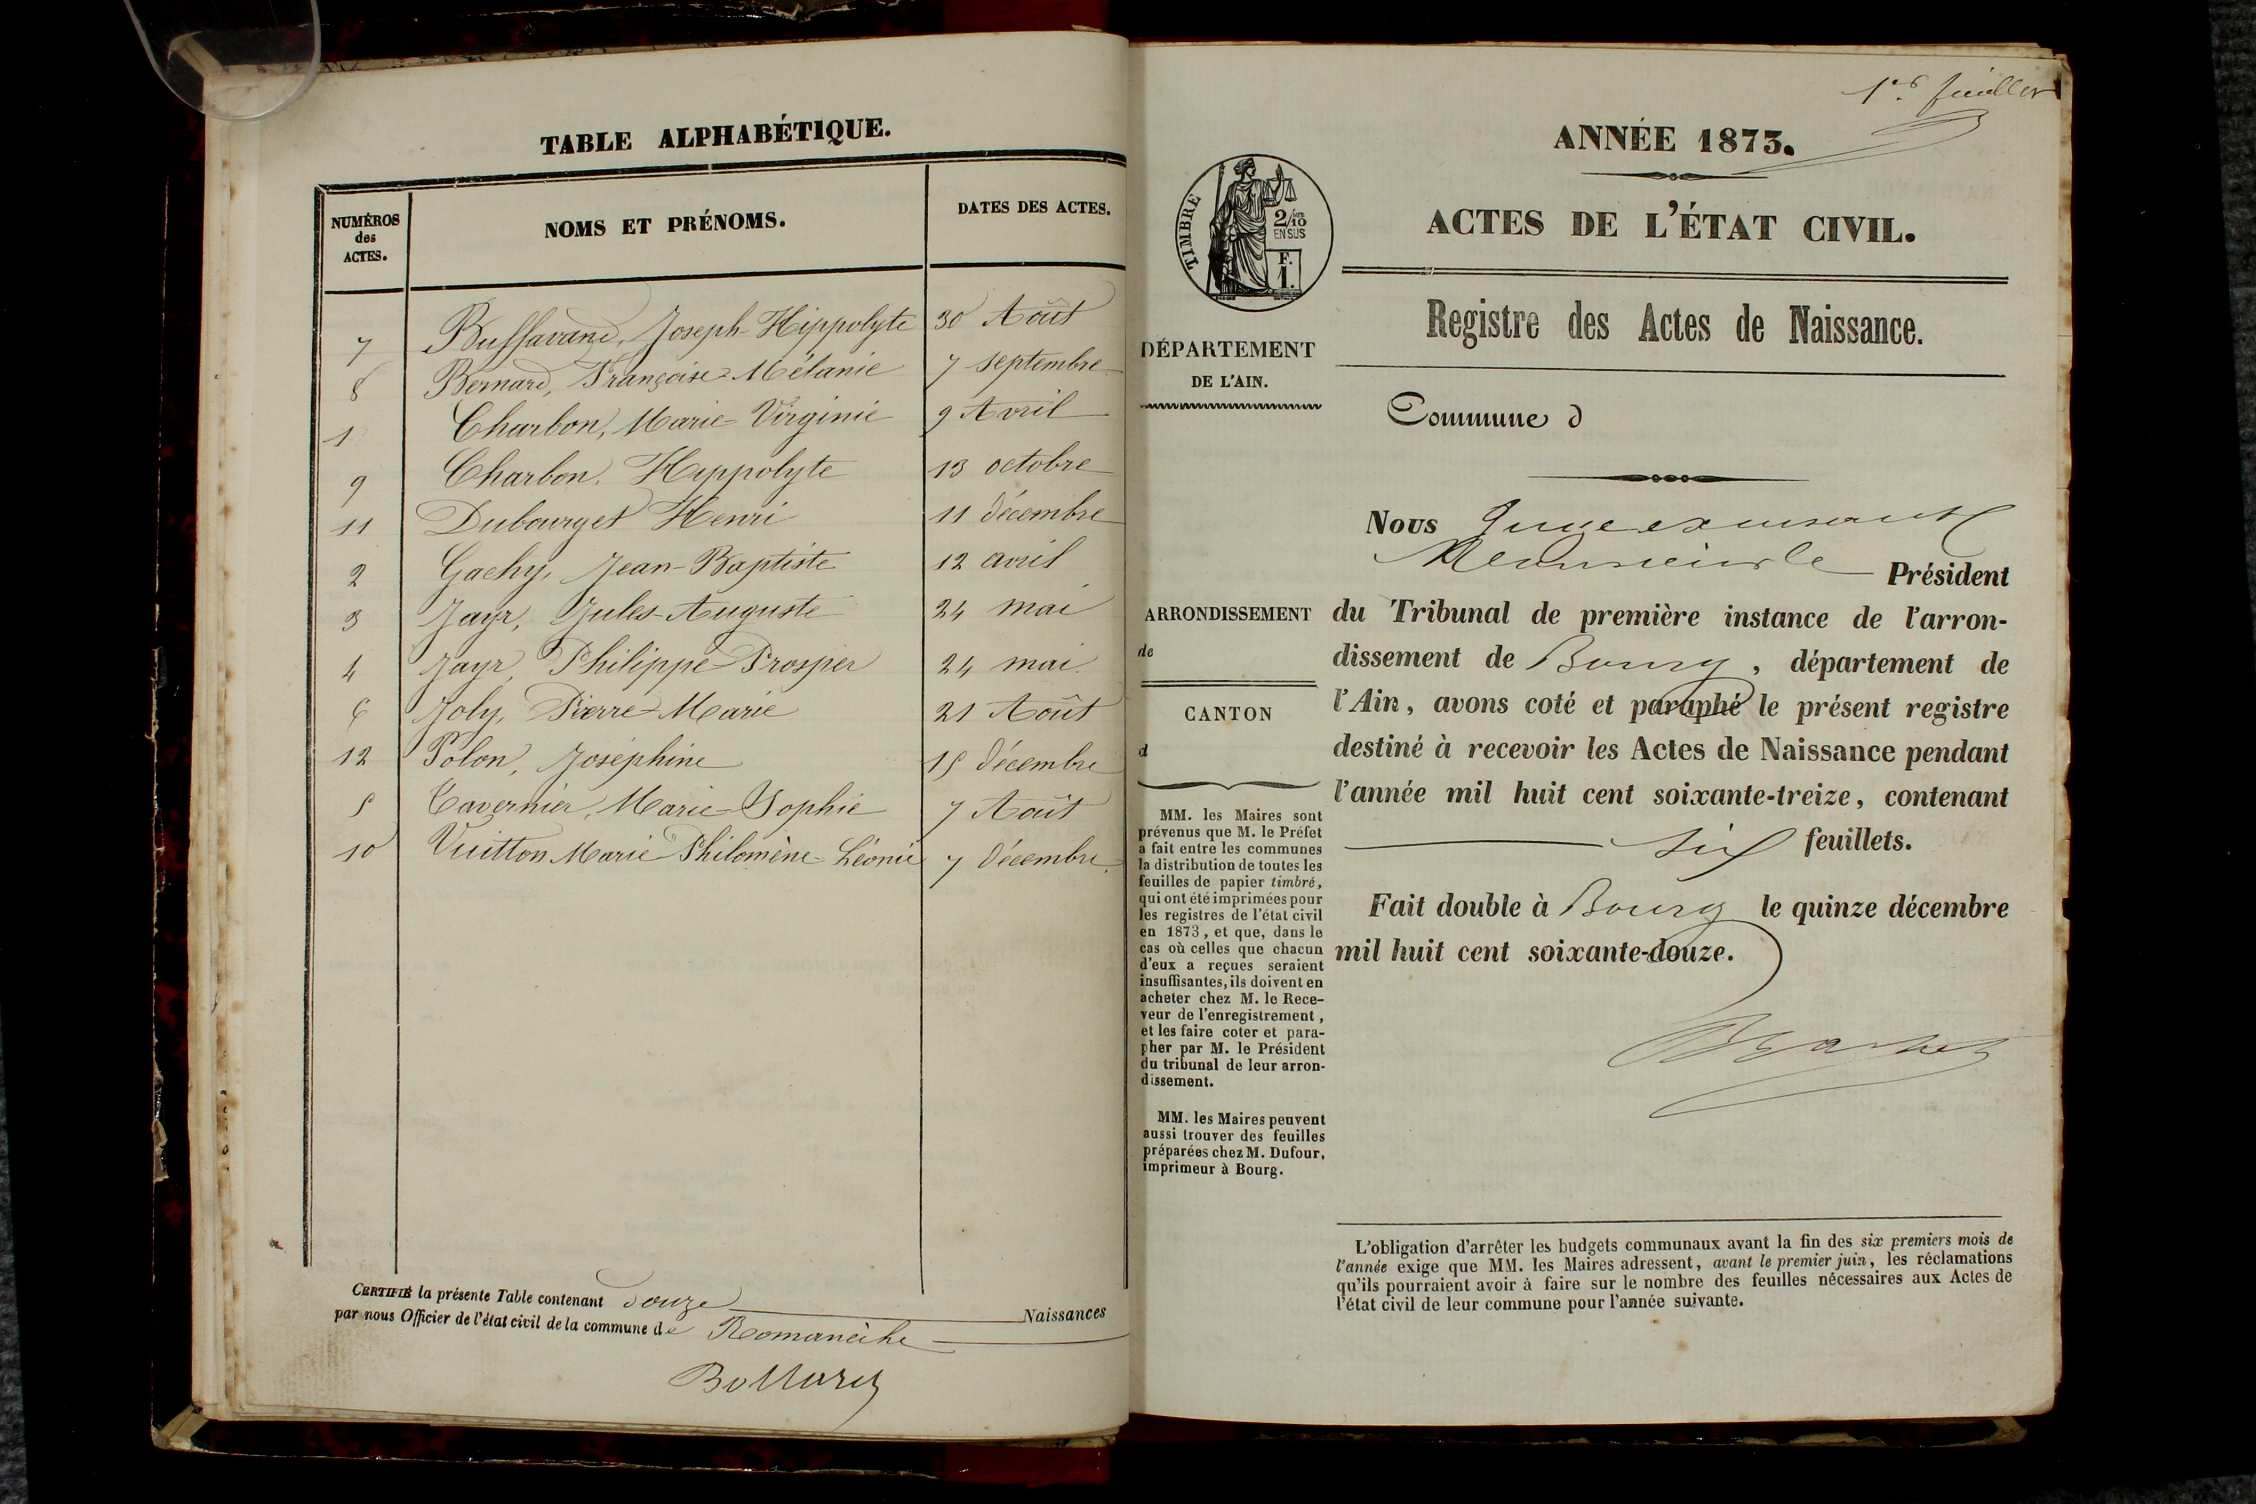 TABLE ALPHABÉTIQUE.
NUMÉROS
des
ACTES.
NOMS ET PRÉNOMS.
DATES DES ACTES.
7 Buffavand, Joseph-Hippolyte 30 Août
8 Bernard, Françoise-Mélanie 7 septembre
1 Charbon, Marie-Virginie 9 Avril
9 Charbon, Hippolyte 13 octobre
11 Dubourget Henri 11 décembre
2 Gachy, Jean-Baptiste 12 avril
3 Jayr, Jules-Auguste 24 mai
4 Jayr, Philippe-Prosper 24 mai
6 Joly, Pierre-Marie 21 Août
12 Polon, Joséphine 15 décembre
5 Tavernier, Marie-Sophie 7 Août
10 Vuitton Marie Philomène-Léonie 7 décembre.
CERTIFIÉ la présente Table contenant douze Naissances
par nous Officier de l'état civil de la commune de Romanèche
1er feuillet
ANNÉE 1873.
ACTES DE L'ÉTAT CIVIL.
TIMBRE
2/10
EN SUS
F.
1.
Registre des Actes de Naissance.
DÉPARTEMENT
DE L'AIN.
Commune d
Nous Juge
Monsieur le Président
du Tribunal de première instance de l'arron-
dissement de Bourg, département de
l'Ain, avons coté et paraphé le présent registre
destiné à recevoir les Actes de Naissance pendant
l'année mil huit cent soixante-treize, contenant
six feuillets.
Fait double à Bourg le quinze décembre
mil huit cent soixante-douze.
ARRONDISSEMENT
de
CANTON
d
MM. les Maires sont
prévenus que M. le Préfet
a fait entre les communes
la distribution de toutes les
feuilles de papier timbré,
qui ont été imprimées pour
les registres de l'état civil
en 1873, et que, dans le
cas où celles que chacun
d'eux a reçues seraient
insuffisantes, ils doivent en
acheter chez M. le Rece-
veur de l'enregistrement,
et les faire coter et para-
pher par M. le Président
du tribunal de leur arron-
dissement.
MM. les Maires peuvent
aussi trouver des feuilles
préparées chez M. Dufour,
imprimeur à Bourg.
L'obligation d'arrêter les budgets communaux avant la fin des six premiers mois de
l'année exige que MM. les Maires adressent, avant le premier juin, les réclamations
qu'ils pourraient avoir à faire sur le nombre des feuilles nécessaires aux Actes de
l'état civil de leur commune pour l'année suivante.